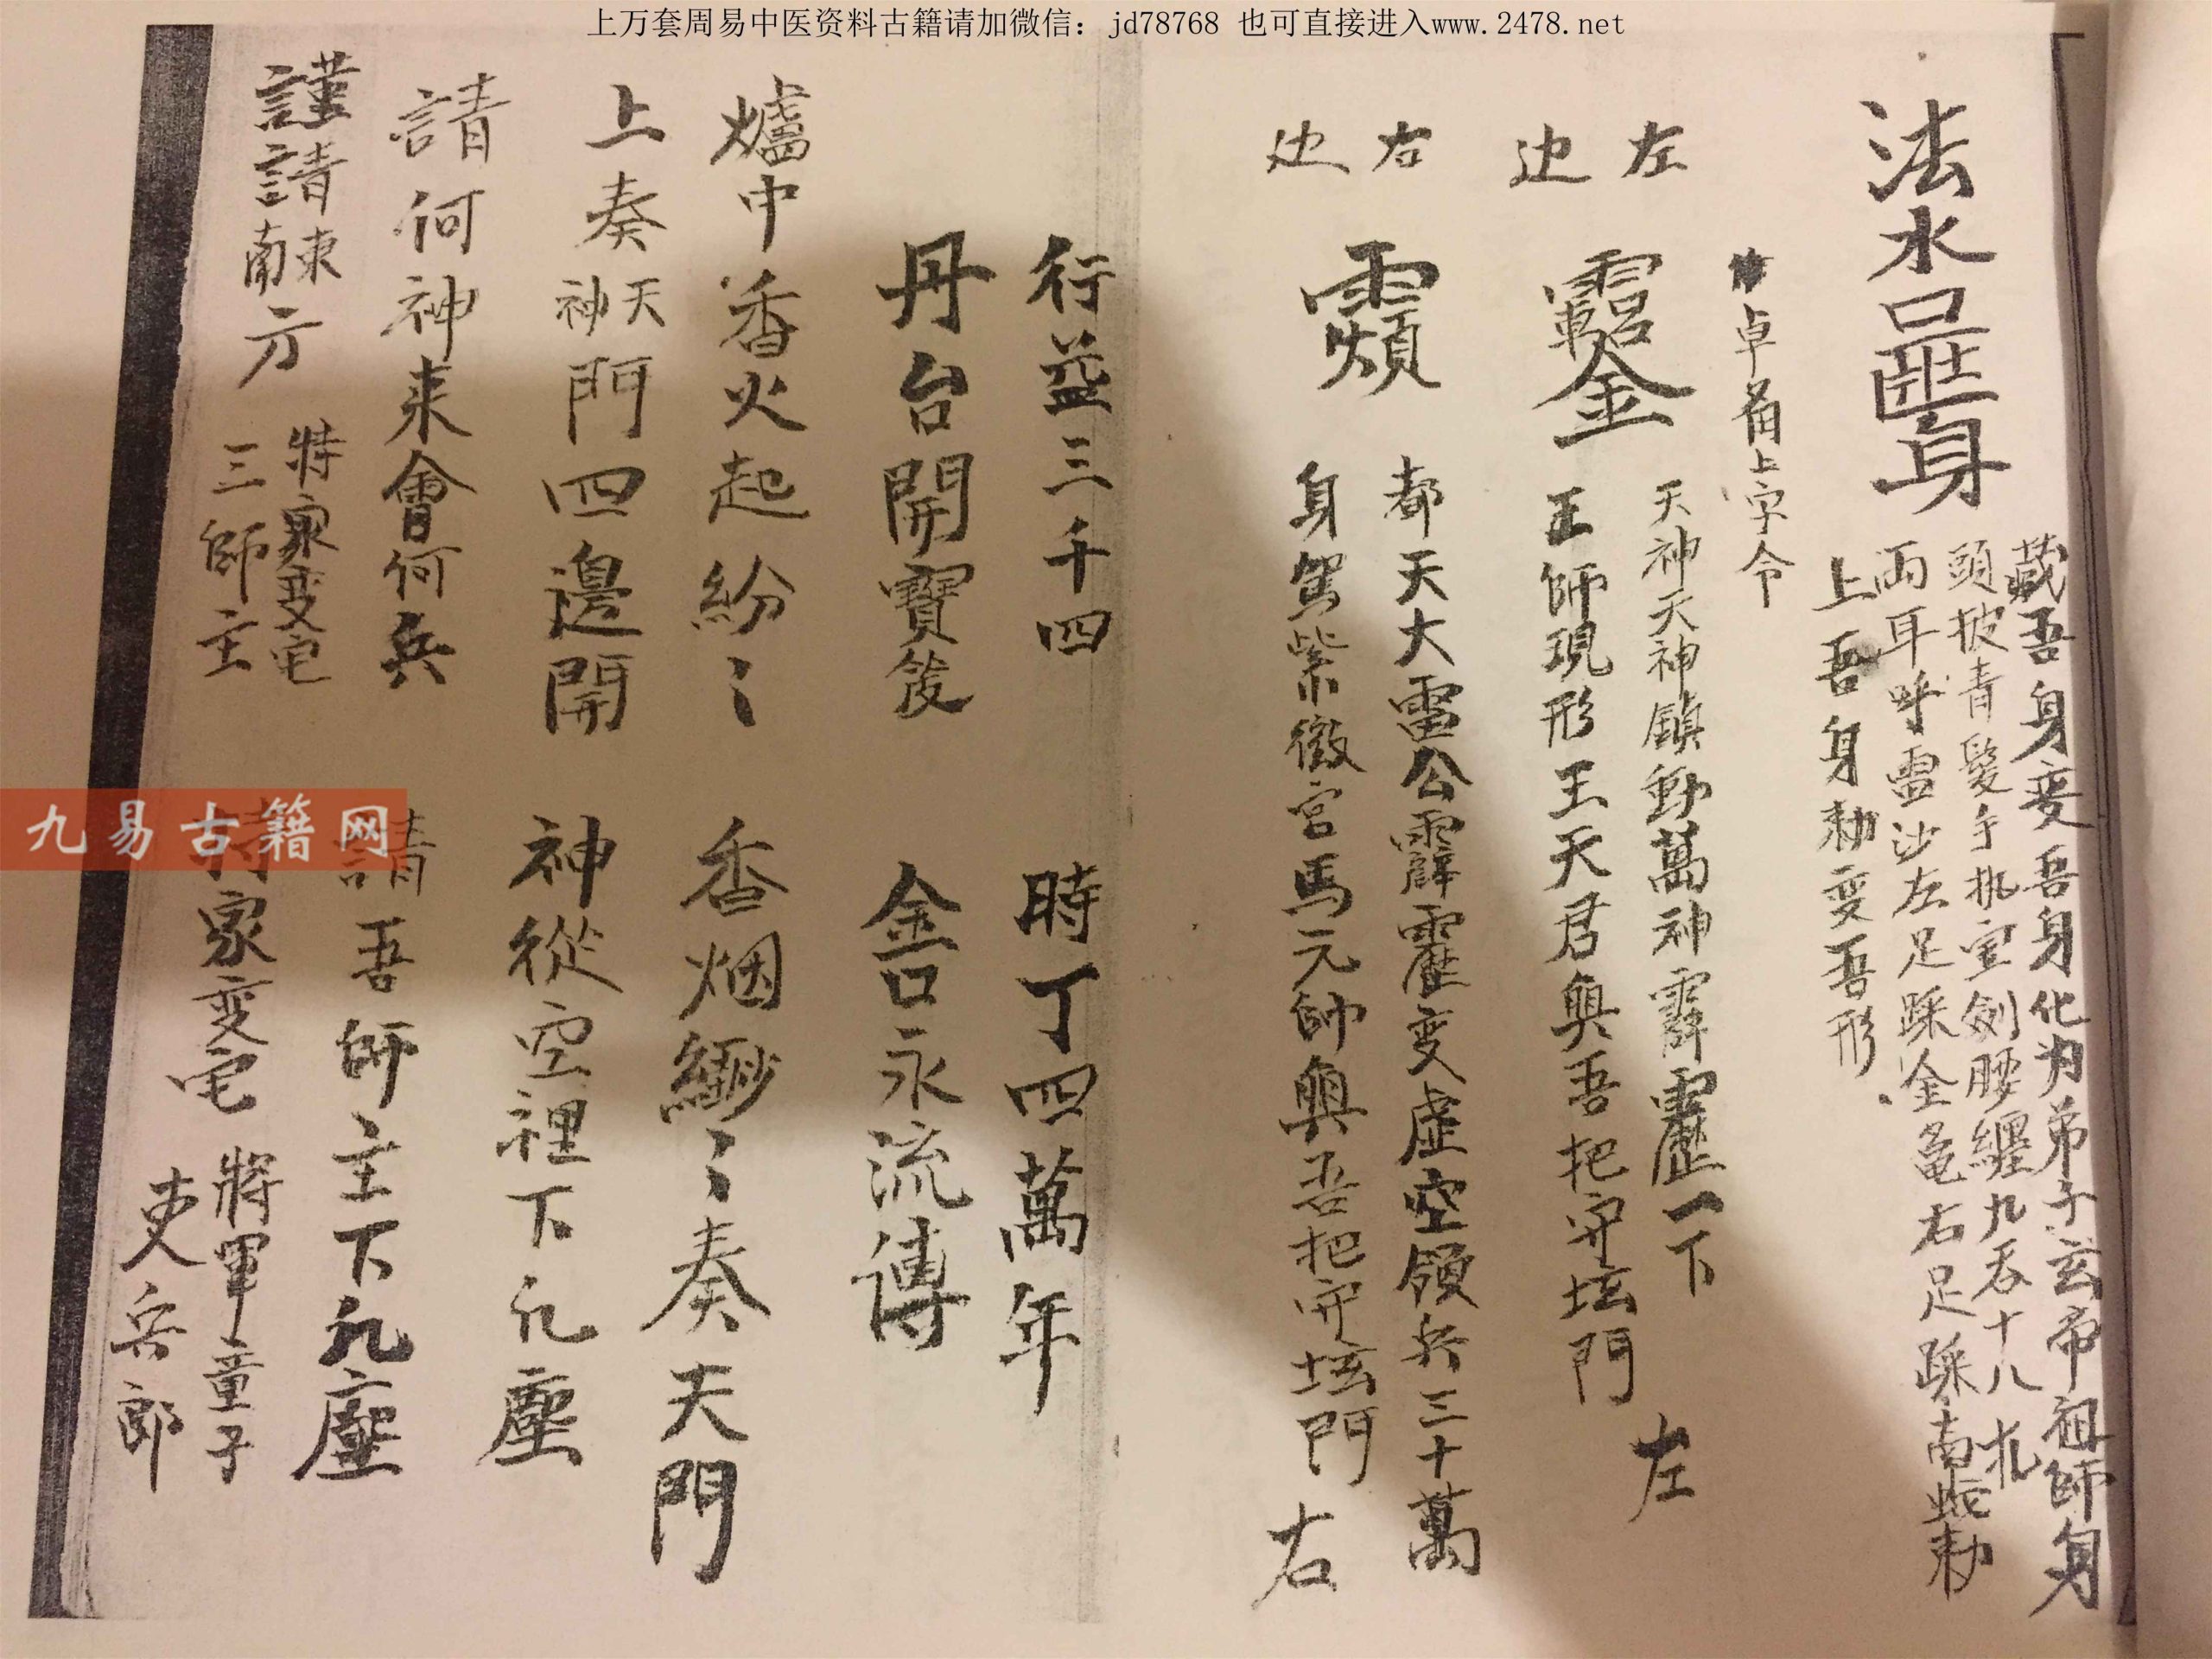 上万套周易中医资料古籍请加微信：jd78768 也可直接进入www.2478.net
法水 身
藏吾身变吾身化为弟子玄帝祖師身
頭披青髮手執宝劍腰纏九吞十八扎
両耳呼雷沙左足踩全龟右足踩南蛇勅
上吾身勅变吾形
卓 上字令
左边
天神天神鎮動萬神霹靂一下
王師現形王天君與吾把守坛門 左
右边
都天大雷公霹靂变虚空領兵三十萬
身駕紫微宮馬元帥與吾把守坛門 右
行益三千四 時丁四萬年
丹台開寶笈 金口永流傳
爐中香火起紛〻 香烟緲〻奏天門
上奏天神門四邊開 神從空裡下凡塵
請何神来會何兵 請吾師主下凡塵
謹請東南方 将家变宅三師主 家变宅 將軍童子吏兵郎
九易古籍网